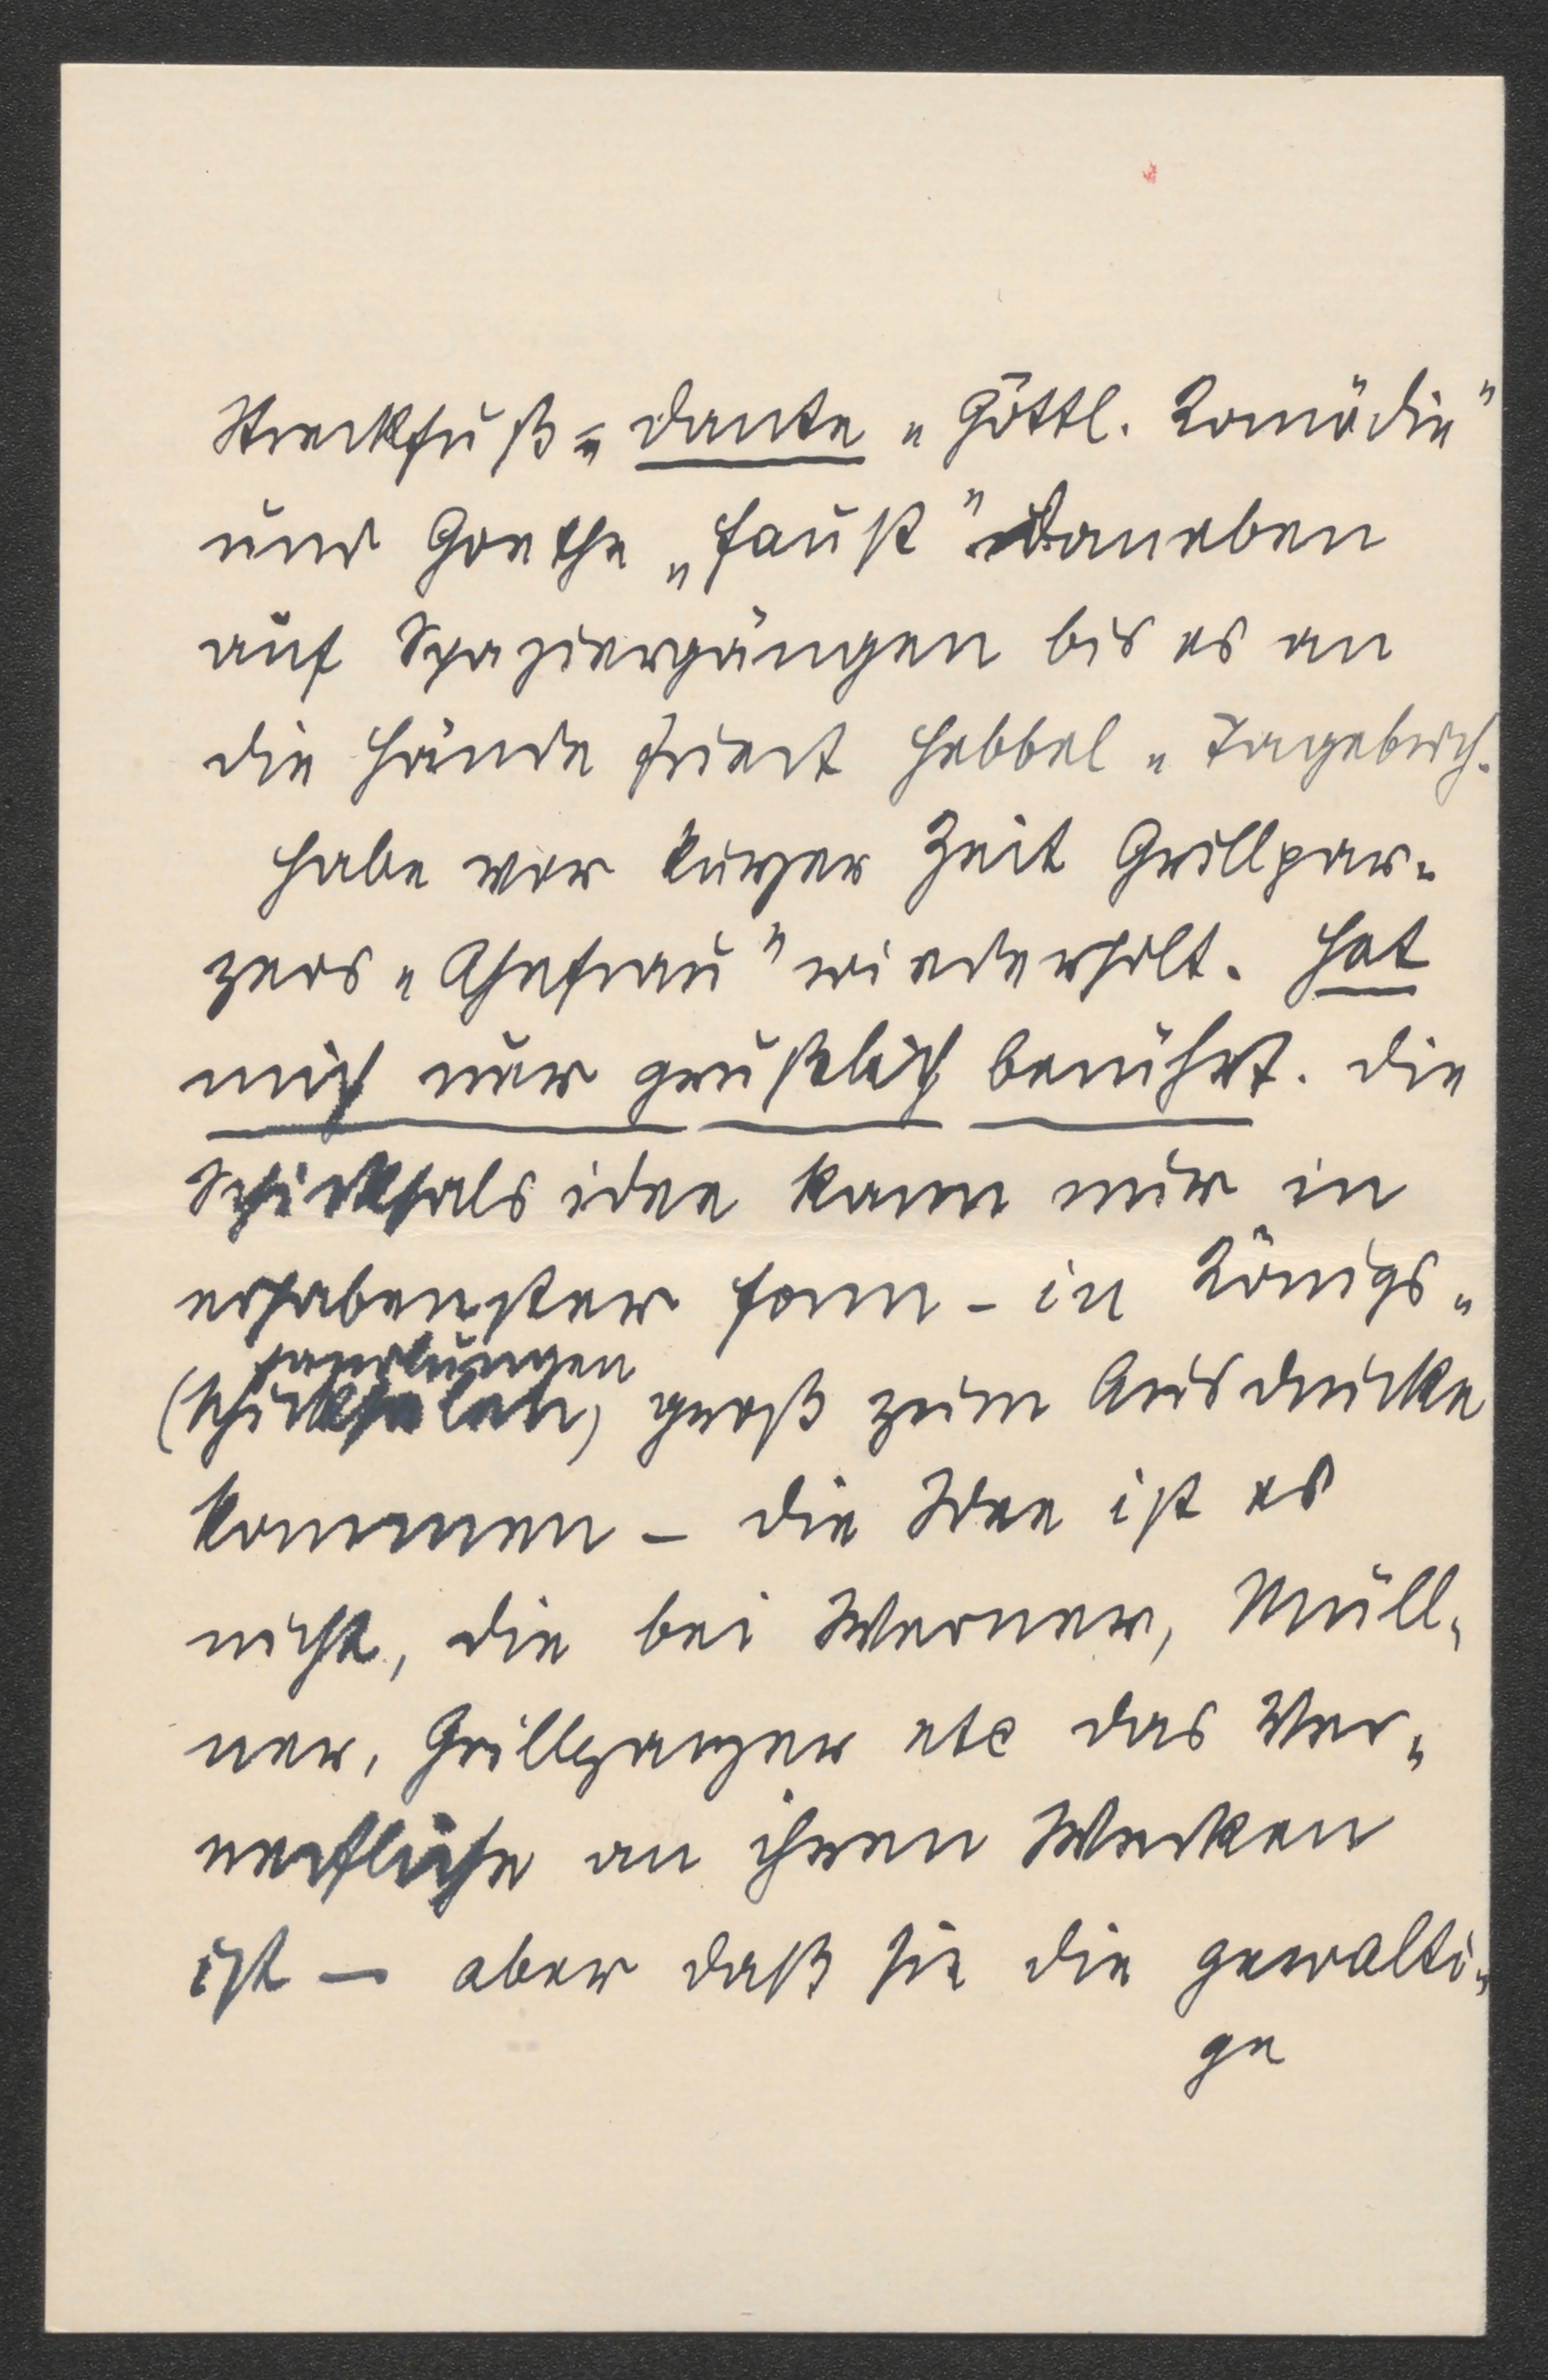 Streckfuß = Dante „Göttl. Komödie"
und Goethe „Faust" Daneben
auf Spaziergängen bis es an
die Hände friert Hebbel „Tagebüch.
Habe vor kurzer Zeit Grillpar-
zers „Ahnfrau" wiederholt. Hat
mich nur grußlich berührt. Die
Schicksalsidee kann nur in
erhabenster Form – in Königs-
handlungen
(Schicksalen) groß zum Ausdrucke
kommen – die Idee ist es
nicht, die bei Werner, Müll-
ner, Grillparzer etc das Ver-
werfliche an ihren Werken
ist – aber daß sie die gewalti-
ge